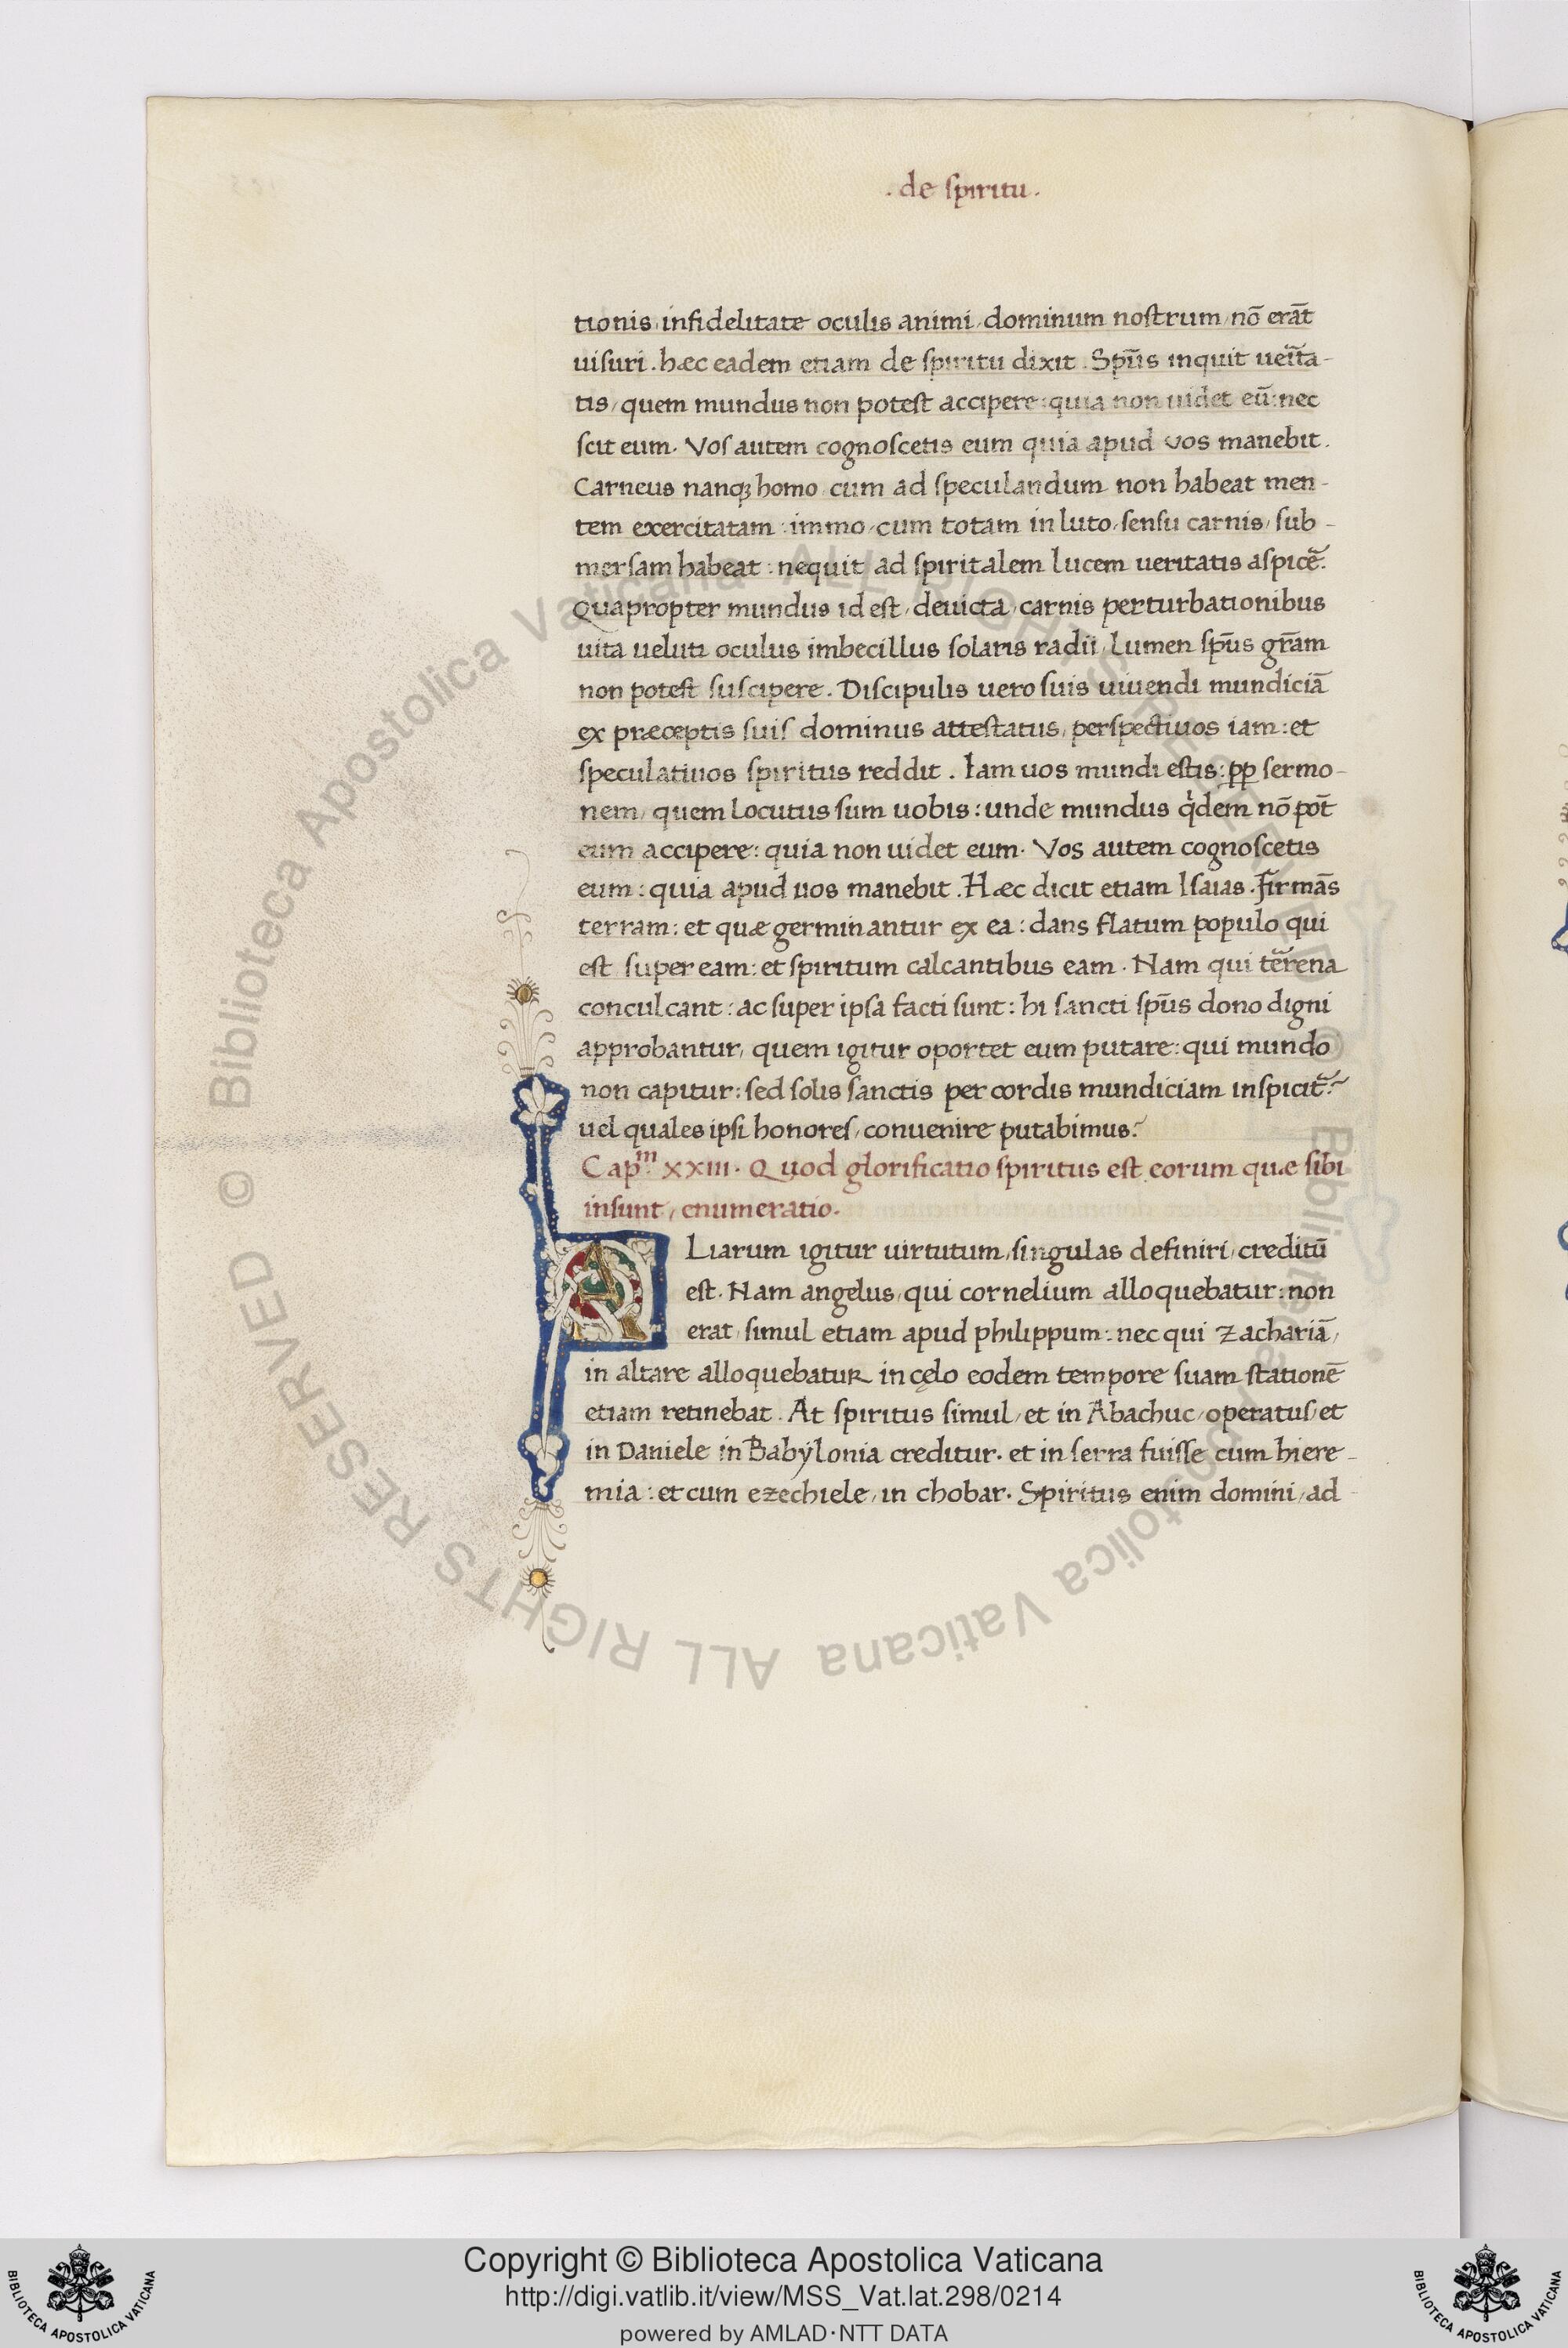 . de spiritu .
tionis, infidelitate oculis animi, dominum nostrum, nō erāt
uisuri . hæc eadem etiam de spiritu dixit . Spūs inquit ueıı̄ta-
tis, quem mundus non potest accipere: quia non uidet eū: nec
scit eum. Vos autem cognoscetis eum quia apud vos manebit.
Carneus nanqꝫ homo cum ad speculandum non habeat men-
tem exercitatam : immo, cum totam in luto, sensu carnis, sub-
mersam habeat : nequit ad spiritalem lucem ueritatis aspicẽ.
Quapropter mundus id est, deuicta, carnis perturbationibus
uita ueluti oculus imbecillus solaris radii, lumen spūs gr̄am
non potest suscipere . Discipulis uero suis uiuendi mundiciā
ex præceptis suis dominus attestatus, perspectiuos iam : et
speculatiuos spiritus reddit . Iam uos mundi estis : ꝓꝑ sermo-
nem, quem locutus sum uobis : unde mundus qⁱdem nō pōt
eum accipere: quia non uidet eum. Vos autem cognoscetis
eum : quia apud uos manebit . Hæc dicit etiam Isaias . firmās
terram : et quæ germinantur ex ea : dans flatum populo qui
est super eam : et spiritum calcantibus eam . Nam qui ter̃ena
conculcant : ac super ipsa facti sunt : hi sancti spūs dono digni
approbantur, quem igitur oportet eum putare : qui mundo
non capitur : sed solis sanctis per cordis mundiciam inspicit̃?
uel quales ipsi honores, conuenire putabimus?
Capᵐ. xxiii. Quod glorificatio spiritus est eorum quæ sibi
insunt, enumeratio.
ALiarum igitur uirtutum, singulas definiri, creditū
est. Nam angelus, qui cornelium alloquebatur : non
erat, simul etiam apud philippum : nec qui Zachariā,
in altare alloquebatur in cęlo eodem tempore suam stationē
etiam retinebat . At spiritus simul, et in Abachuc, operatus, et
in Daniele in Babÿlonia creditur. et in serra fuisse cum hiere-
mia : et cum ezechiele, in chobar. Spiritus enim domini, ad
© Biblioteca Apostolica Vaticana ALL RIGHTS RESERVED
© Biblioteca Apostolica Vaticana ALL RIGHTS RESERVED
BIBLIOTECA APOSTOLICA VATICANA
Copyright © Biblioteca Apostolica Vaticana
http://digi.vatlib.it/view/MSS_Vat.lat.298/0214
powered by AMLAD·NTT DATA
BIBLIOTECA APOSTOLICA VATICANA